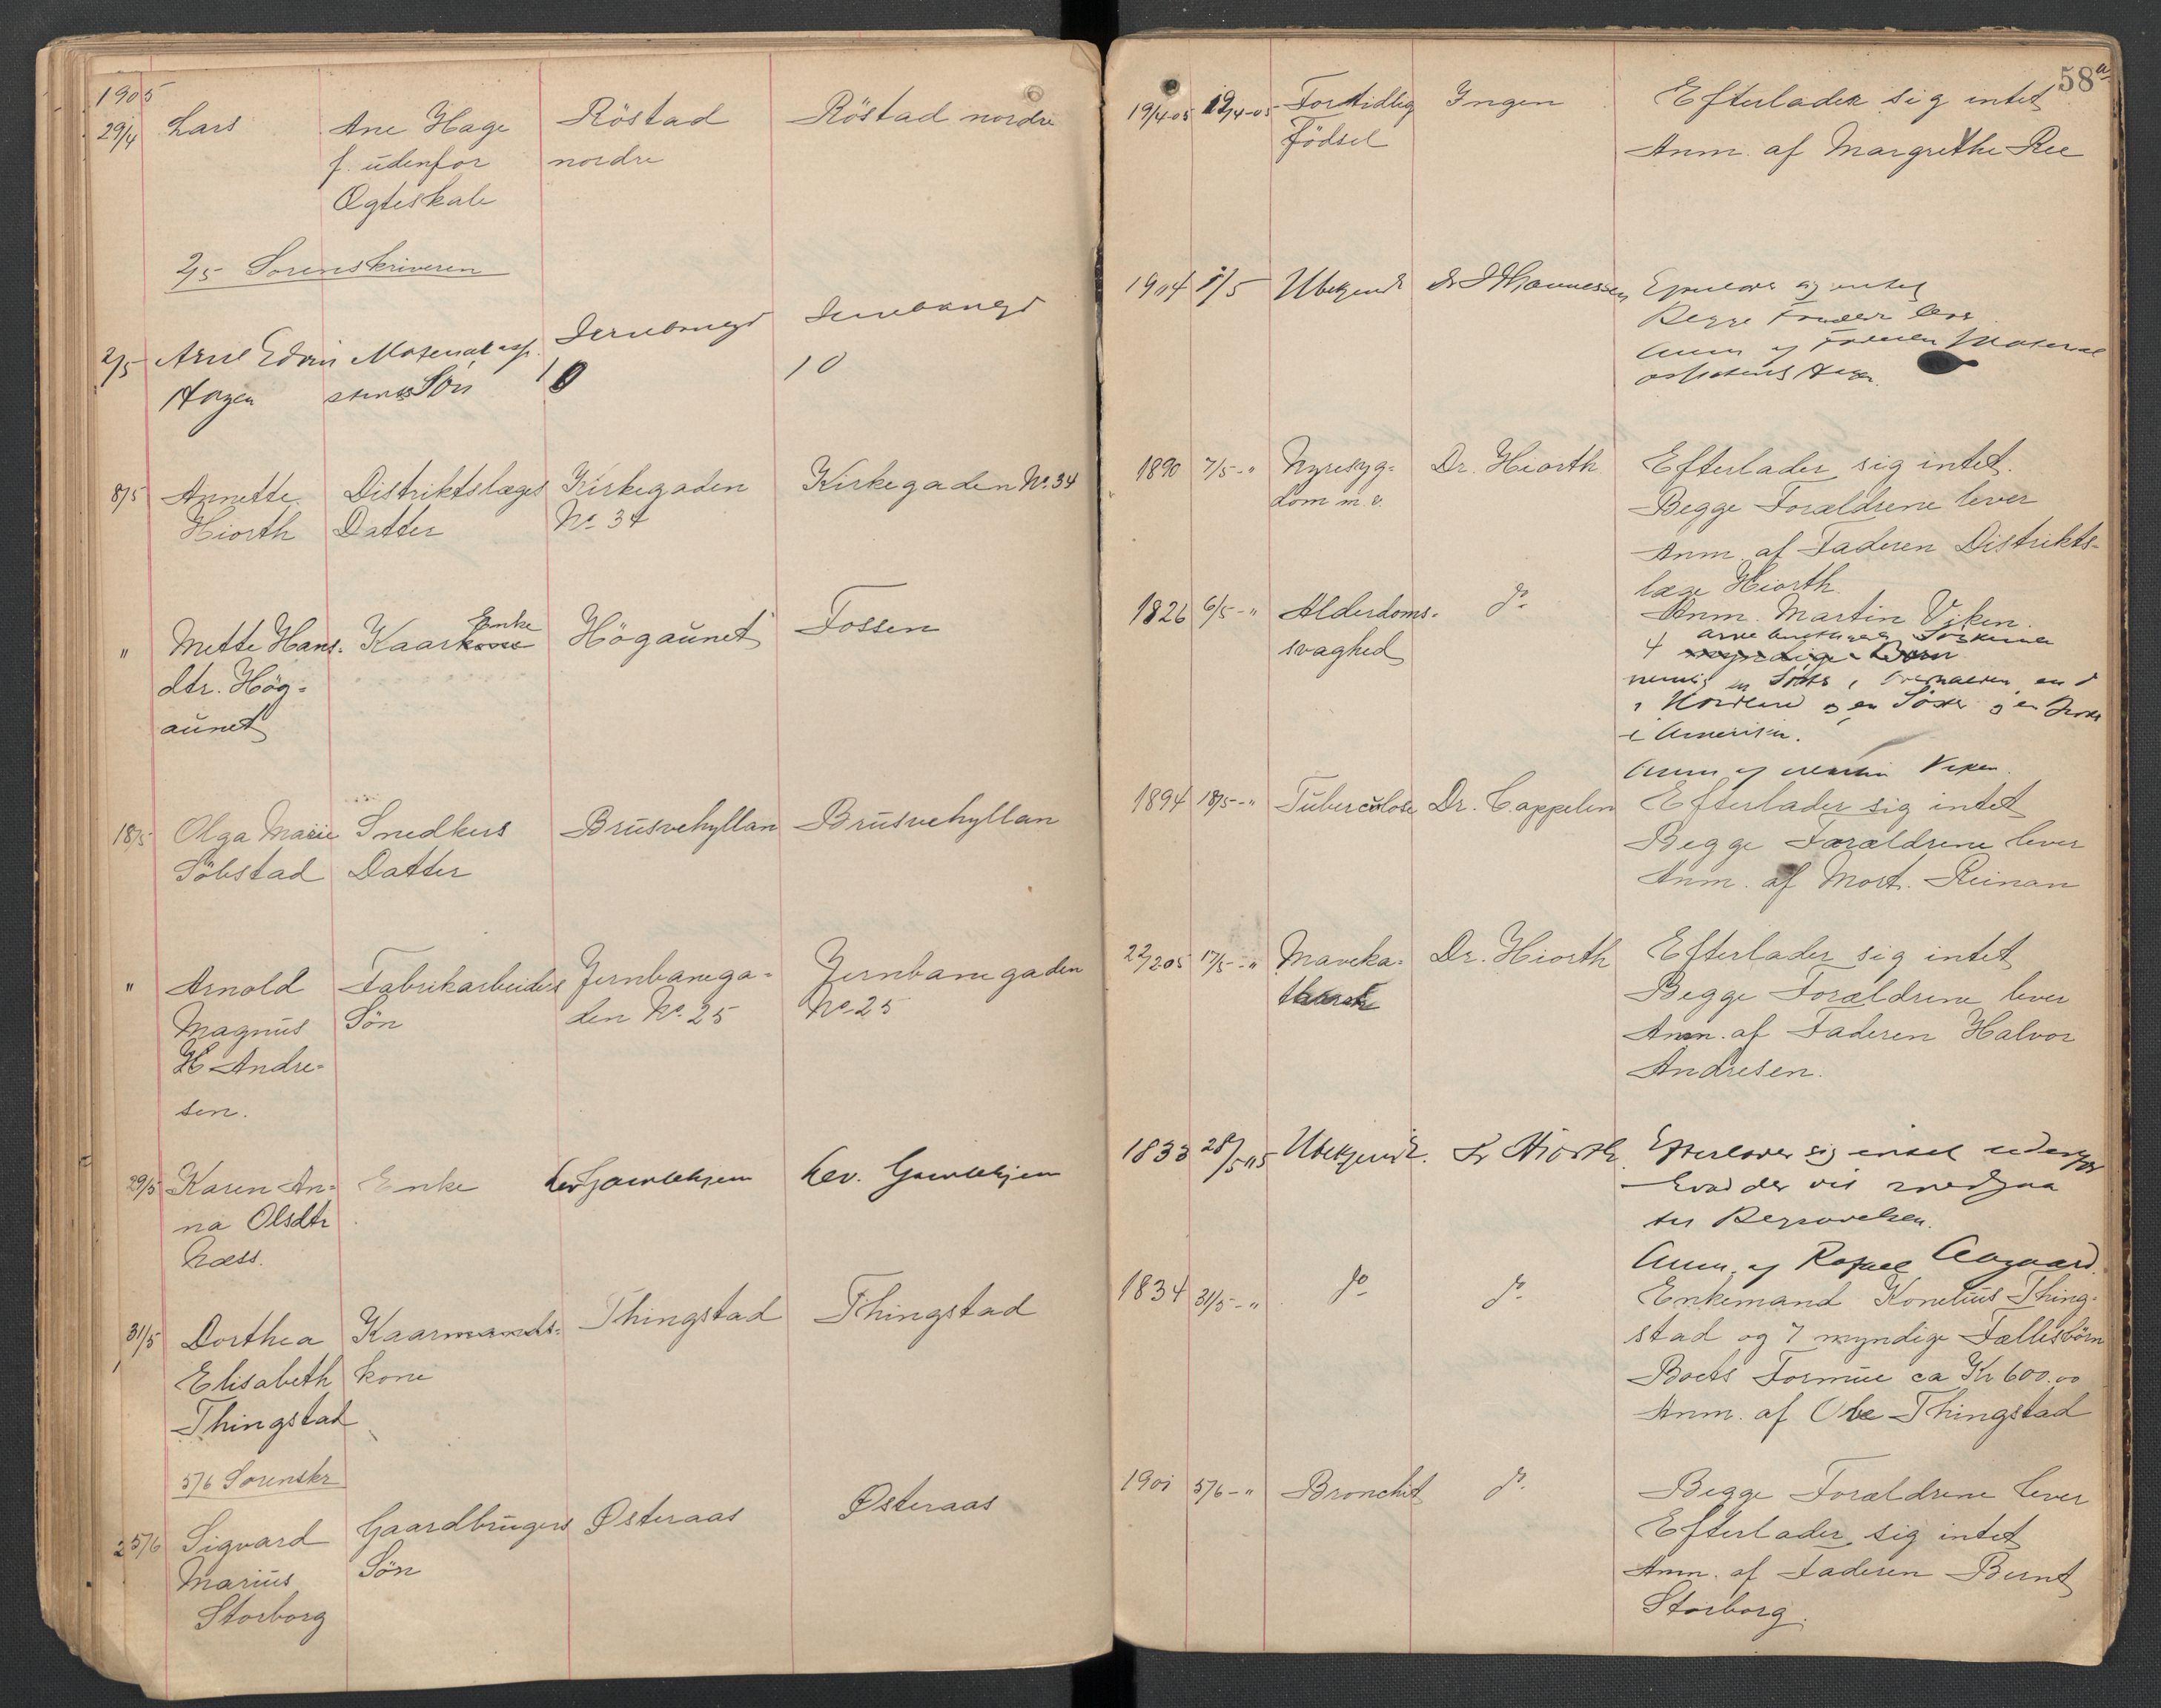 1905
29/4 Lars Ane Hage Röstad Röstad nordre
f. udenfor nordre
Ægteskab
2/5 Sorenskriveren
2/5 Arne Edvin Materialasp.
Hagen Sön 10 10
8/5 Annette Distriktslæges Kirkegaden Kirkegaden No. 34
Hiorth Datter No. 34
" Mette Hans- Kaarkone Enke Högaunet Fossen
dtr. Hög-
aunet
18/5 Olga Marie Snedkers Brusvehyllan Brusvehyllan
Söbstad Datter
" Arnold Fabrikarbeiders Jernbanega- Jernbanegaden
Magnus Sön den No. 25 No 25
H Andre-
sen.
29/5 Karen An- Enke Lev. Gamlehjem Lev. Gamlehjem
na Olsdtr
Næss.
31/5 Dorthea Kaarmands- Thingstad Thingstad
Elisabeth kone
Thingstad
5/6 Sorenskr
5/6 Sigvard Gaardbrugers Østeraas Østeraas
Marius Sön
Storborg
58a
19/4-05 19/4-05 Fortidlig Ingen Efterlader sig intet
Födsel Anm. af Margrethe Ree
1904 1/5 Ubekjendt Dr Efterlader sig intet
Begge Forældre lever
Anm af Faderen Material
1890 7/5-" Nyresyg- Dr. Hiorth Efterlader sig intet.
dom m.v. Begge Forældrene lever
Anm. af Faderen Distrikts-
læge Hiorth.
1826 6/5-" Alderdoms- do Anm. Martin Viken.
svaghed 4 Söskende
myndige Börn
nemlig en Söster i Overhalden, en do
i Nordland og en Söster og en Broder
i Amerika.
Anm af Martin Viken.
1894 18/5-" Tuberculose Dr. Cappelen Efterlader sig intet
Begge Forældrene lever
Anm. af Mort. Reinan
22/2 05 17/5-" Maveka- Dr. Hiorth Efterlader sig intet
tharrh Begge Forældrene lever
Anm. af Faderen Halvor
Andresen.
1833 28/5 05 Ubekjendt. Dr Hiorth. Efterlader sig intet udenfor
hvad der vil medgaa
til Begravelsen.
Anm. af Aagaard.
1834 31/5-" do do Enkemand Konelius Thing-
stad og 7 myndige Fællesbörn
Boets Formue ca Kr 600.00
Anm. af Ole Thingstad
1901 5/6-" Bronchit do Begge Forældrene lever
Efterlader sig intet
Anm. af Faderen Bernt
Storborg.